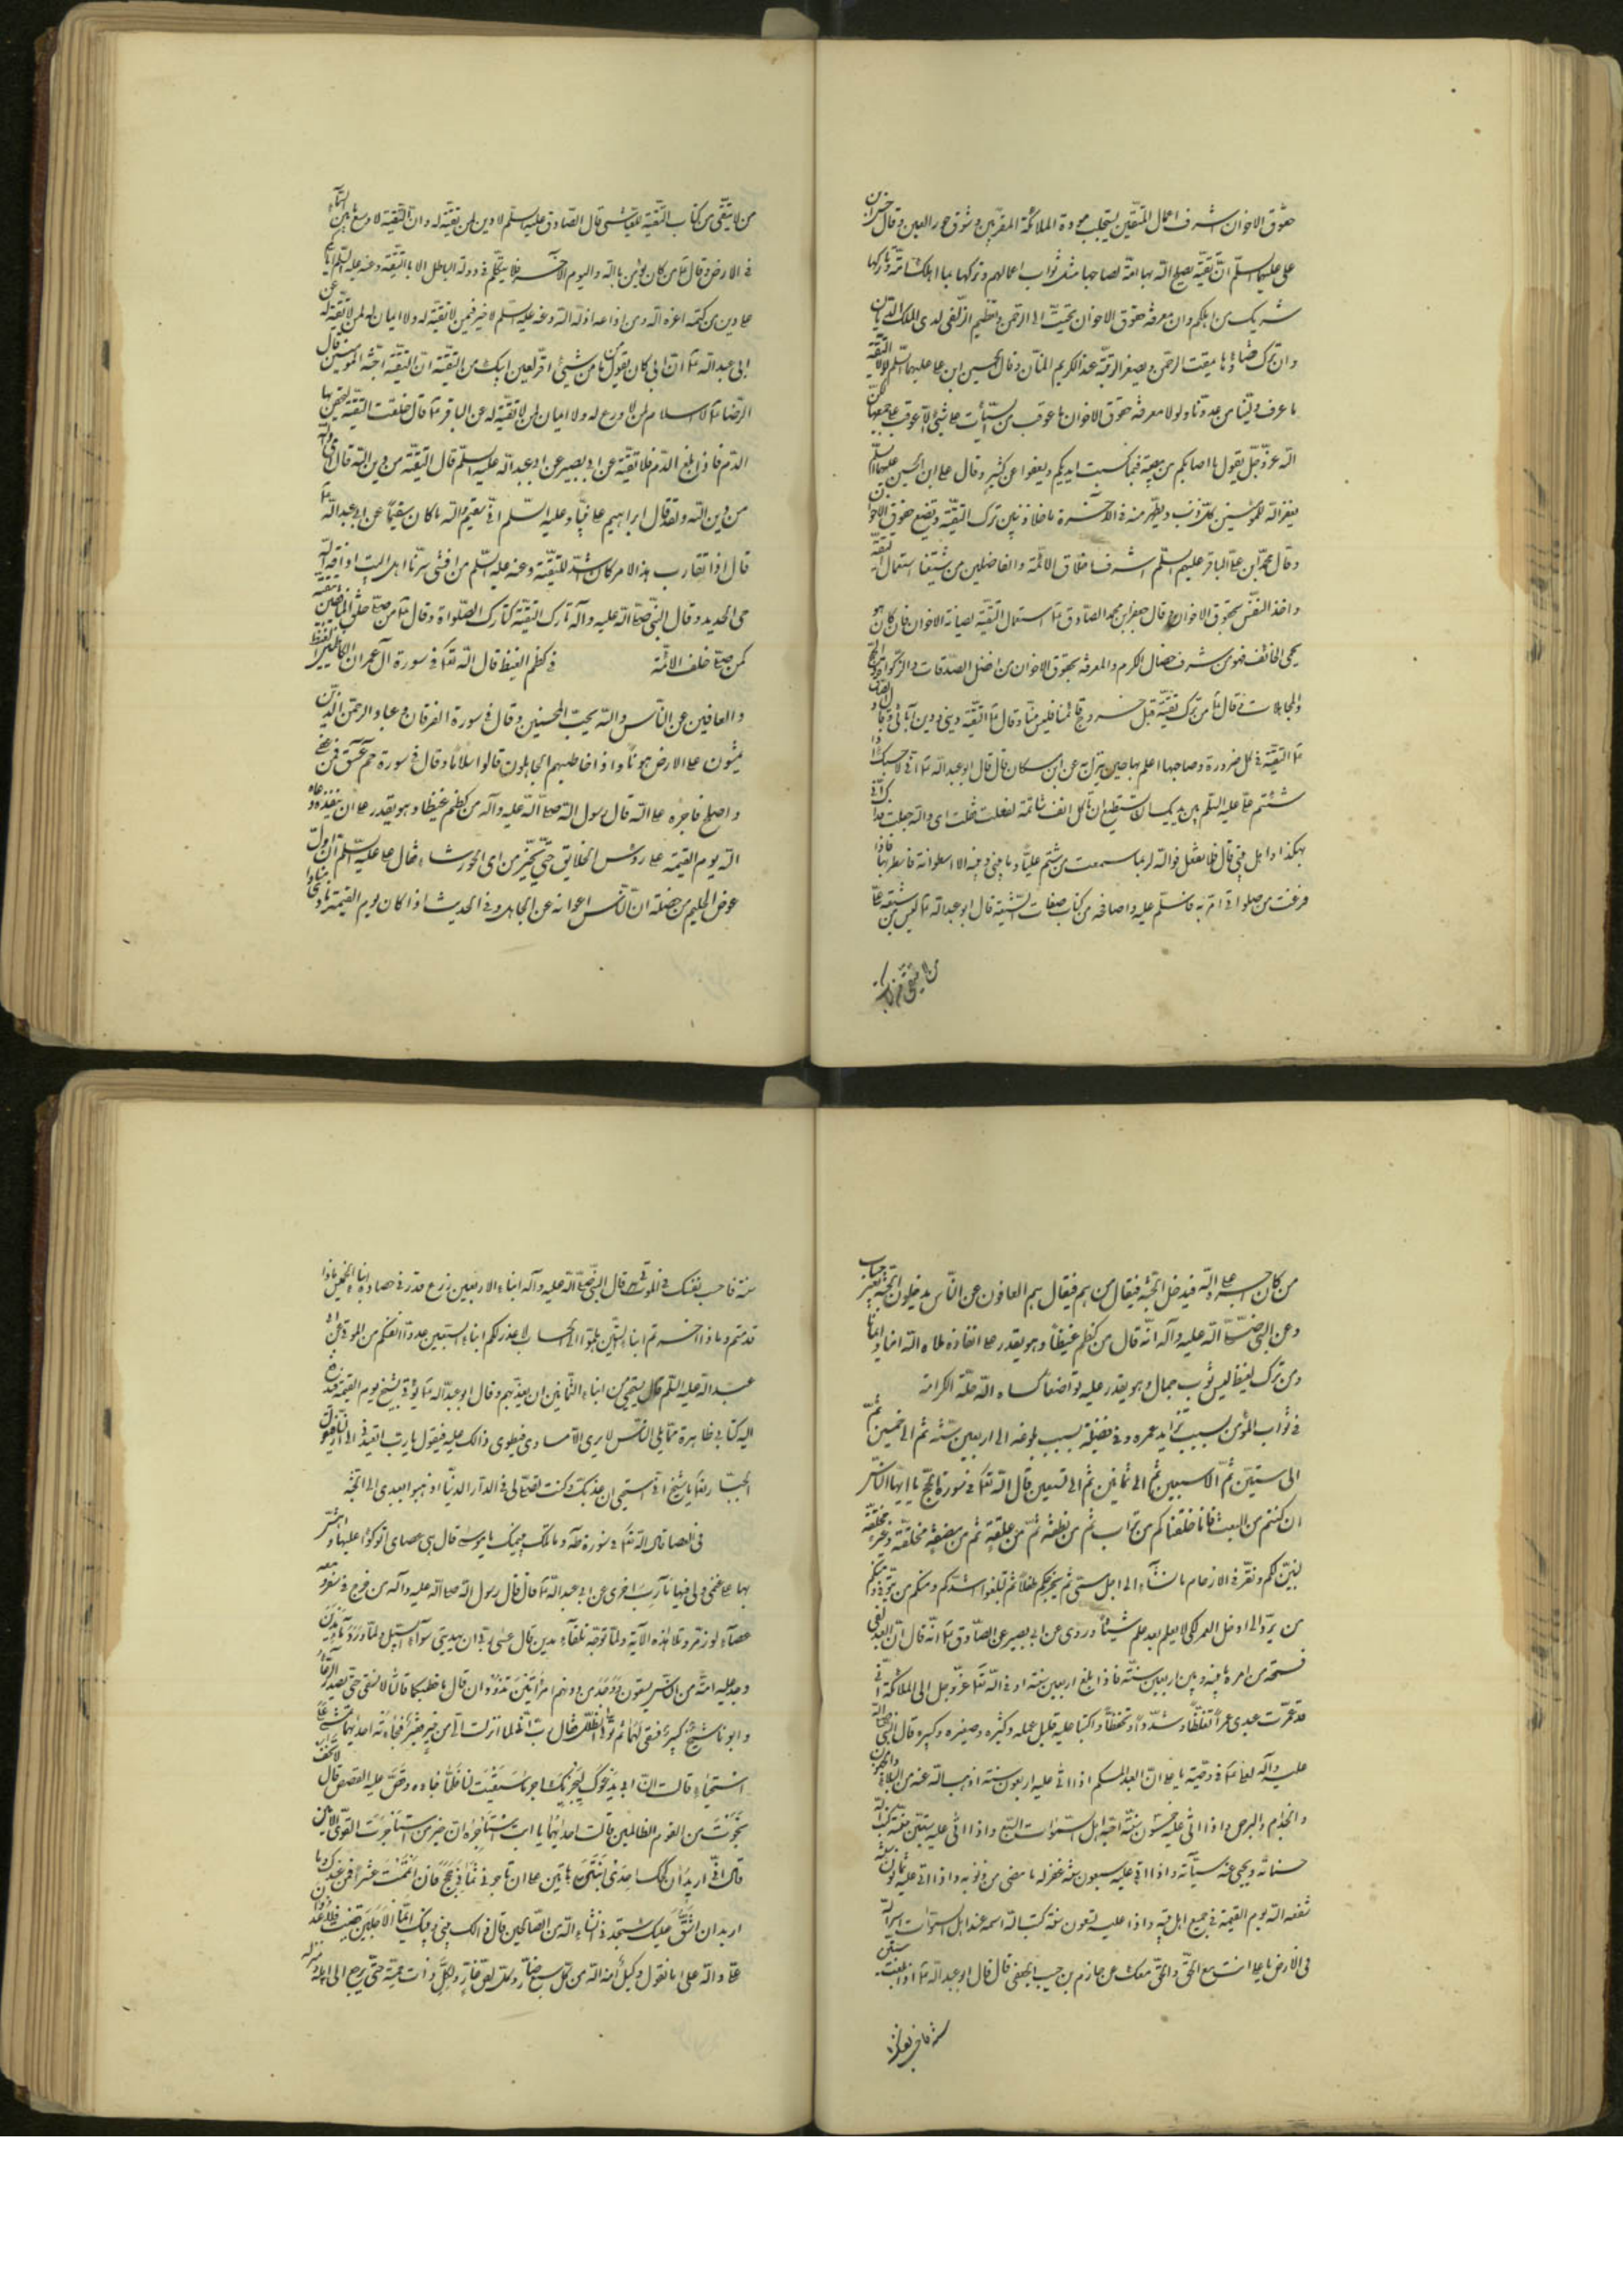 حقوق الاخوان اشرف اعمال المتقين يستجلب مودة الملائكة المقربين وشوق حور العين وقال حسن بن
على عليهما السلم ان تقية يصلح الله بها امة لصاحبها مثل ثواب اعمالهم وتركها ربما اهلك امة وتاركها
شريك من اهلكهم وان معرفة حقوق الاخوان تحبب الى الرحمن وتعظم الزلفى لدى الملك الديان
وان ترك قضاؤها يمقت الرحمن ويصغر الرتبة عند الكريم المنان وقال الحسين ابن على عليهما السلم لولا التقية
ما عرف ولينا من عدونا ولولا معرفة حقوق الاخوان ما عوقب من السيئات على شئ الا عوقب على جميعها لكن
الله عز وجل يقول ما اصابكم من مصيبة فبما كسبت ايديكم ويعفوا عن كثير وقال على ابن الحسين عليهما السلم
يغفر الله للمؤمنين كل ذنب ويطهر منه فى الآخرة ما خلا ذنبين ترك التقية وتضيع حقوق الاخوان
وقال محمد ابن على الباقر عليهم السلم اشرف اخلاق الائمة والفاضلين من شيعتنا استعمال التقية
واخذ النفس بحقوق الاخوان وقال جعفر ابن محمد الصادق ع استعمال التقية لصيانة الاخوان فان كان هو
يحمى الخائف فهو من اشرف خصال الكرم والمعرفة بحقوق الاخوان من افضل الصدقات والزكوة والحج
والمجاهدات وقال ع من ترك تقية قبل خروج قائمنا فليس منا وقال ع التقية دينى ودين آبائى وقال
ع التقية فى كل ضرورة وصاحبها اعلم بها حين ينزل به عن ابن مسكان قال قال ابو عبد الله ع انى لاحسبك اذا
شتم على عليه السلم بين يديك ان تستطيع ان تاكل انف شاتمه لفعلت فقلت اى والله جعلت فداك انى
هكذا واهل بيتى قال فلا تفعل فوالله لربما سمعت من شتم عليا وما بينى وبينه الا اسطوانة فاستتر بها فاذا
فرغت من صلواتى امر به فاسلم عليه واصافحه من كتاب صفات الشيعة قال ابو عبد الله ع ليس من شيعة على
من لا يتقى من كتاب
من لا يتقى من كتاب التقية للعياشى قال الصادق عليه السلم لا دين لمن لا تقية له وان التقية لاوسع ما بين السماء
فى الارض وقال ع من كان يؤمن بالله واليوم الآخر فلا يتكلم فى دولة الباطل الا بالتقية وعنه عليه السلم انكم
على دين من كتمه اعزه الله ومن اذاعه اذله الله وعنه عليه السلم لا خير فيمن لا تقية له ولا ايمان لمن لا تقية له عن
ابى عبد الله ع ان ابى كان يقول ما من شئ اقر لعين ابيك من التقية ان التقية جنة المؤمنين قال
الرضا ع لا اسلام لمن لا ورع له ولا ايمان لمن لا تقية له عن الباقر ع قال خلقت التقية ليحقن بها
الدم فاذا بلغ الدم فلا تقية عن ابى بصير عن ابى عبد الله عليه السلم قال التقية من دين الله قال اى والله
من دين الله ولقد قال ابراهيم على نبينا وعليه السلم انى سقيم والله ما كان سقيما عن ابى عبد الله ع
قال اذا تقارب هذا الامر كان اشد للتقية وعنه عليه السلم من افشى سرنا اهل البيت اذاقه الله
حر الحديد وقال النبى صلى الله عليه وآله تارك التقية كتارك الصلواة وقال ع من صلى خلف المنافقين تقية
كمن صلى خلف الائمة فى كظم الغيظ قال الله تعا فى سورة آل عمران والكاظمين الغيظ
والعافين عن الناس والله يحب المحسنين وقال فى سورة الفرقان وعباد الرحمن الذين
يمشون على الارض هونا واذا خاطبهم الجاهلون قالوا سلاما وقال فى سورة حم عسق فمن عفى
واصلح فاجره على الله قال رسول الله صلى الله عليه وآله من كظم غيظا وهو يقدر على ان ينفذه دعاه
الله يوم القيمة على رؤس الخلايق حتى يخير من اى الحور شاء قال على عليه السلم ان اول
عوض الحليم من خصلته ان الناس اعوانه عن الجاهل وفى الحديث اذا كان يوم القيمة نادى مناد
من كان اجره على الله فيدخل الجنة فيقال من هم فيقال هم العافون عن الناس يدخلون الجنة بغير حساب
وعن النبى صلى الله عليه وآله انه قال من كظم غيظا وهو يقدر على انفاذه ملاه الله امنا وايمانا
ومن ترك لبس ثوب جمال وهو يقدر عليه تواضعا كساه الله حلة الكرامة
فى ثواب المؤمن بسبب تزايد عمره وفى فضيلة بسبب بلوغه الى اربعين سنة ثم الى خمسين ثم
الى ستين ثم الى سبعين ثم الى ثمانين ثم الى تسعين قال الله تعا فى سورة الحج يا ايها الناس
ان كنتم من البعث فانا خلقناكم من تراب ثم من نطفة ثم من علقة ثم من مضغة مخلقة وغير مخلقة
لنبين لكم ونقر فى الارحام ما نشاء الى اجل مسمى ثم نخرجكم طفلا ثم لتبلغوا اشدكم ومنكم من يتوفى ومنكم
من يرد الى ارذل العمر لكى لا يعلم بعد علم شيئا وروى عن ابى بصير عن الصادق ع انه قال ان العبد لفى
فسحة من امره ما بينه وبين اربعين سنة فاذا بلغ اربعين سنة اوحى الله تعا عز وجل الى الملائكة انى
قد عمرت عبدى عمرا فغلظا وشددا وتحفظا واكتبا عليه قليل عمله وكثيره وصغيره وكبيره قال النبى صلى الله
عليه وآله لعلى ع فى وصيته يا على ان العبد المسلم اذا اتى عليه اربعون سنة اذهب الله عنه من البلاء الجنون
والجذام والبرص واذا اتى عليه خمسون سنة احبه اهل السموات السبع واذا اتى عليه ستين سنة كتب الله
حسناته ومحى عنه سيئاته واذا اتى عليه سبعون سنة غفر له ما مضى من ذنوبه واذا اتى عليه ثمانون سنة
شفعه الله يوم القيمة فى جميع اهل بيته واذا عليه تسعون سنة كتب الله اسمه عند اهل السموات اسير الله
فى الارض يا على انت مع الحق والحق معك عن حازم بن حبيب الجعفى قال قال ابو عبد الله ع اذا بلغت ستين
سنة فاحسب نفسك
سنة فاحسب نفسك فى الموتى قال النبى صلى الله عليه وآله ابناء الاربعين زرع قد دنى حصاده ابناء الخمسين ماذا
قدمتم وماذا اخرتم ابناء الستين هلموا الى الحساب لا عذر لكم ابناء السبعين عدوا انفسكم من الموتى عن ابى
عبد الله عليه السلم قال يستحيى من ابناء الثمانين ان يعذبهم وقال ابو عبد الله ع يؤتى بشيخ يوم القيمة فيدفع
اليه كتابه ظاهره مما يلى الناس لا يرى الا مساوى فيطول ذالك عليه فيقول يا رب اتعيدنى الى النار فيقول
الجبار يا شيخ انى استحيى ان اعذبك وكنت تصلى لى فى الدار الدنيا اذهبوا بعبدى الى الجنة
فى العصا قال الله تعا فى سورة طه وما تلك بيمينك يا موسى قال هى عصاى اتوكؤا عليها واهش
بها على غنمى ولى فيها مآرب اخرى عن ابى عبد الله ع قال قال رسول الله صلى الله عليه وآله من خرج فى سفر ومعه
عصاء لوز مر وتلا هذه الآية ولما توجه تلقاء مدين قال عسى ربى ان يهدينى سوآء السبيل ولما ورد ماء مدين
وجد عليه امة من الناس يسقون ووجد من دونهم امراتين تذودان قال ما خطبكما قالتا لا نسقى حتى يصدر الرعاء
وابونا شيخ كبير فسقى لهما ثم تولى الى الظل فقال رب انى لما انزلت الى من خير فقير فجاءته احديهما تمشى على
استحياء قالت ان ابى يدعوك ليجزيك اجر ما سقيت لنا فلما جاءه وقص عليه القصص قال لا تخف
نجوت من القوم الظالمين قالت احديهما يا ابت استاجره ان خير من استاجرت القوى الامين
قال انى اريد ان انكحك احدى ابنتى هاتين على ان تاجرنى ثمانى حجج فان اتممت عشرا فمن عندك وما
اريد ان اشق عليك ستجدنى ان شاء الله من الصالحين قال ذالك بينى وبينك ايما الاجلين قضيت فلا عدوان
على والله على ما نقول وكيل امنه الله من كل سبع ضار ومن كل لص عاد وكل ذات حمة حتى يرجع الى اهله ومنزله